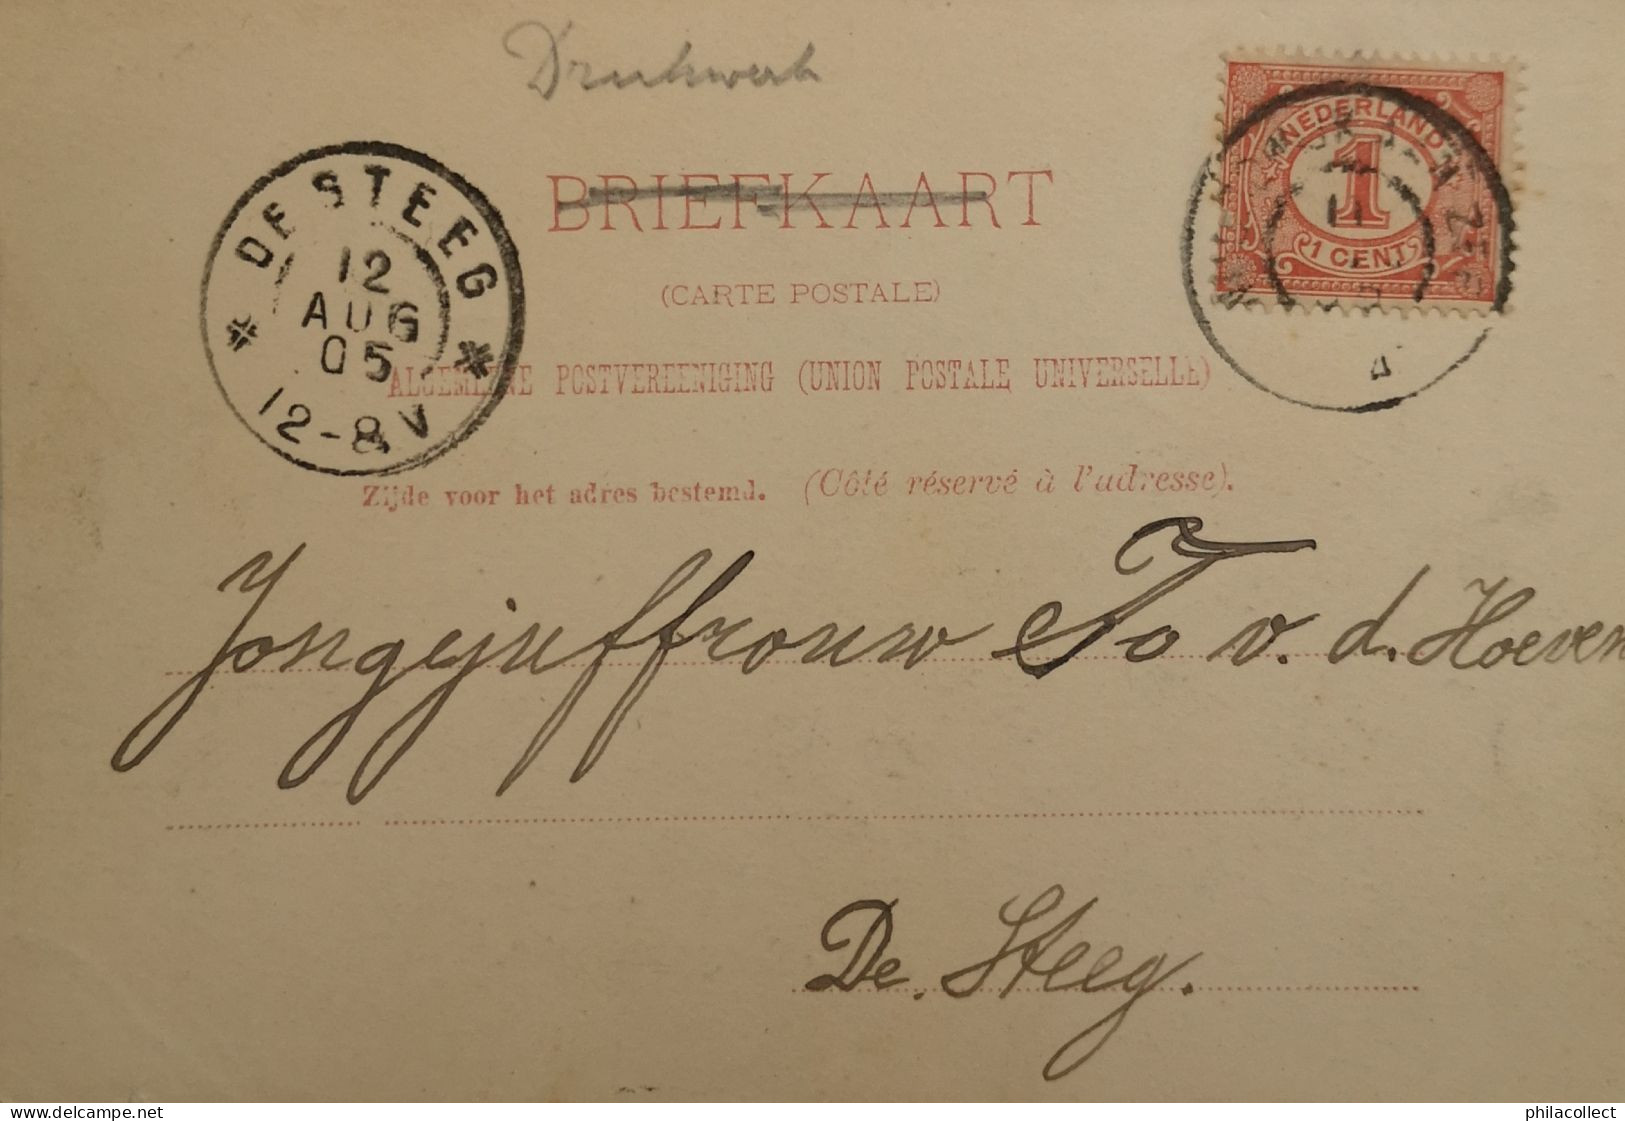 Drukwerk
NEDERLAND
1
1 CENT
BRIEFKAART
(CARTE POSTALE)
DE STEEG
12
AUG
05
12-8V
ALGEMEENE POSTVEREENIGING (UNION POSTALE UNIVERSELLE)
Zijde voor het adres bestemd. (Côté réservé à l'adresse).
Jongejuffrouw To v. d. Hoeven
De Steeg.
www.delcampe.net
philacollect